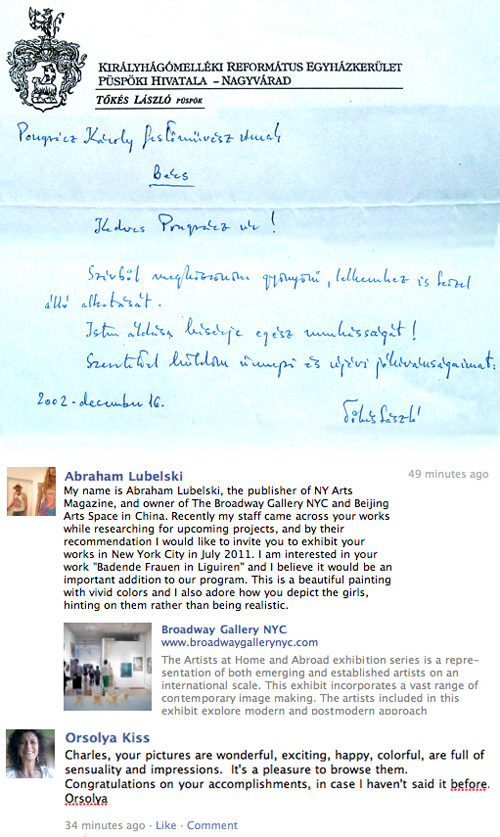 KIRÁLYHÁGÓMELLÉKI REFORMÁTUS EGYHÁZKERÜLET
PÜSPÖKI HIVATALA – NAGYVÁRAD
TŐKÉS LÁSZLÓ PÜSPÖK
Pongrácz Károly festőművész úrnak
Bécs
Kedves Pongrácz úr!
Szívből megköszönöm gyönyörű, lelkemhez is közel
álló alkotását.
Isten áldása kísérje egész munkásságát!
Szeretettel küldöm ünnepi és újévi jókívánságaimat:
2002. december 16.
Tőkés László
Abraham Lubelski
49 minutes ago
My name is Abraham Lubelski, the publisher of NY Arts
Magazine, and owner of The Broadway Gallery NYC and Beijing
Arts Space in China. Recently my staff came across your works
while researching for upcoming projects, and by their
recommendation I would like to invite you to exhibit your
works in New York City in July 2011. I am interested in your
work "Badende Frauen in Liguiren" and I believe it would be an
important addition to our program. This is a beautiful painting
with vivid colors and I also adore how you depict the girls,
hinting on them rather than being realistic.
Broadway Gallery NYC
www.broadwaygallerynyc.com
The Artists at Home and Abroad exhibition series is a repre-
sentation of both emerging and established artists on an
international scale. This exhibit incorporates a vast range of
contemporary image making. The artists included in this
exhibit explore modern and postmodern approach
Orsolya Kiss
Charles, your pictures are wonderful, exciting, happy, colorful, are full of
sensuality and impressions. It's a pleasure to browse them.
Congratulations on your accomplishments, in case I haven't said it before.
Orsolya
34 minutes ago · Like · Comment